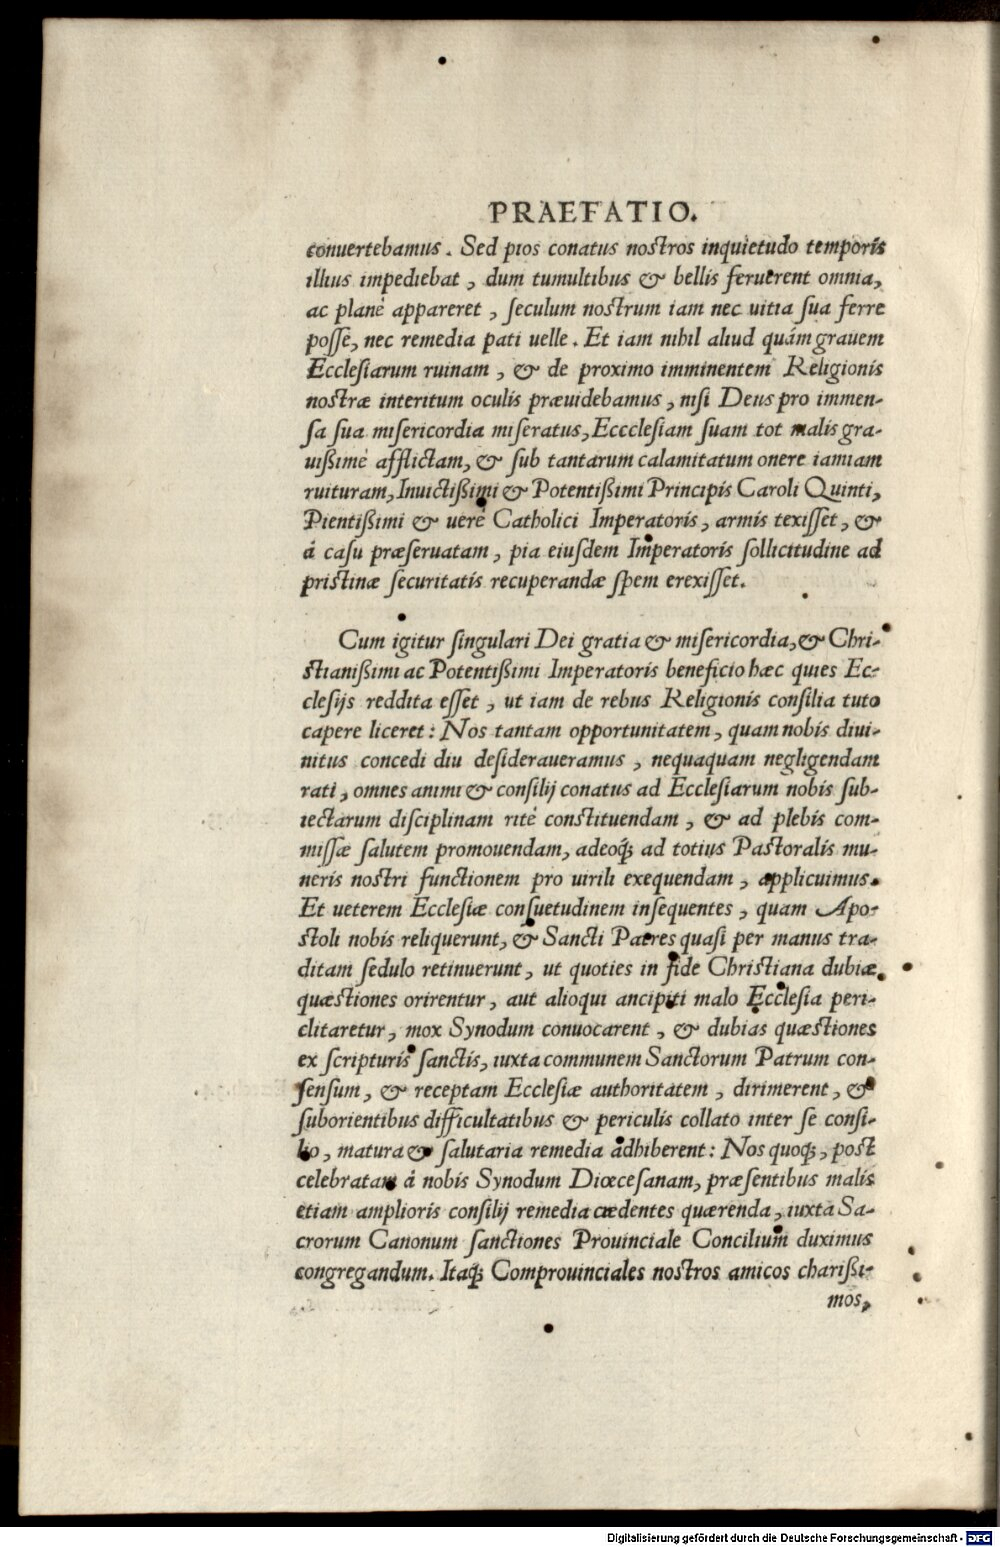 PRAEFATIO.
conuertebamus. Sed pios conatus nostros inquietudo temporis
illius impediebat, dum tumultibus & bellis feruerent omnia,
ac planè appareret, seculum nostrum iam nec uitia sua ferre
posse, nec remedia pati uelle. Et iam nihil aliud quám grauem
Ecclesiarum ruinam, & de proximo imminentem Religionis
nostræ interitum oculis præuidebamus, nisi Deus pro immen-
sa sua misericordia miseratus, Eccclesiam suam tot malis gra-
uißimè afflictam, & sub tantarum calamitatum onere iamiam
ruituram, Inuictißimi & Potentißimi Principis Caroli Quinti,
Pientißimi & uerè Catholici Imperatoris, armis texisset, &
á casu præseruatam, pia eiusdem Imperatoris sollicitudine ad
pristinæ securitatis recuperandæ spem erexisset.
Cum igitur singulari Dei gratia & misericordia, & Chri-
stianißimi ac Potentißimi Imperatoris beneficio hæc quies Ec-
clesijs reddita esset, ut iam de rebus Religionis consilia tuto
capere liceret: Nos tantam opportunitatem, quam nobis diui-
nitus concedi diu desideraueramus, nequaquam negligendam
rati, omnes animi & consilij conatus ad Ecclesiarum nobis sub-
iectarum disciplinam ritè constituendam, & ad plebis com-
missæ salutem promouendam, adeoq́; ad totius Pastoralis mu-
neris nostri functionem pro uirili exequendam, applicuimus.
Et ueterem Ecclesiæ consuetudinem insequentes, quam Apo-
stoli nobis reliquerunt, & Sancti Patres quasi per manus tra-
ditam sedulo retinuerunt, ut quoties in fide Christiana dubiæ
quæstiones orirentur, aut alioqui ancipiti malo Ecclesia peri-
clitaretur, mox Synodum conuocarent, & dubias quæstiones
ex scripturis sanctis, iuxta communem Sanctorum Patrum con-
sensum, & receptam Ecclesiæ authoritatem, dirimerent, &
suborientibus difficultatibus & periculis collato inter se consi-
lio, matura & salutaria remedia adhiberent: Nos quoq́;, post
celebratam á nobis Synodum Diœcesanam, præsentibus malis
etiam amplioris consilij remedia cædentes quærenda, iuxta Sa-
crorum Canonum sanctiones Prouinciale Concilium duximus
congregandum. Itaq́; Comprouinciales nostros amicos charißi-
mos,
Digitalisierung gefördert durch die Deutsche Forschungsgemeinschaft - DFG